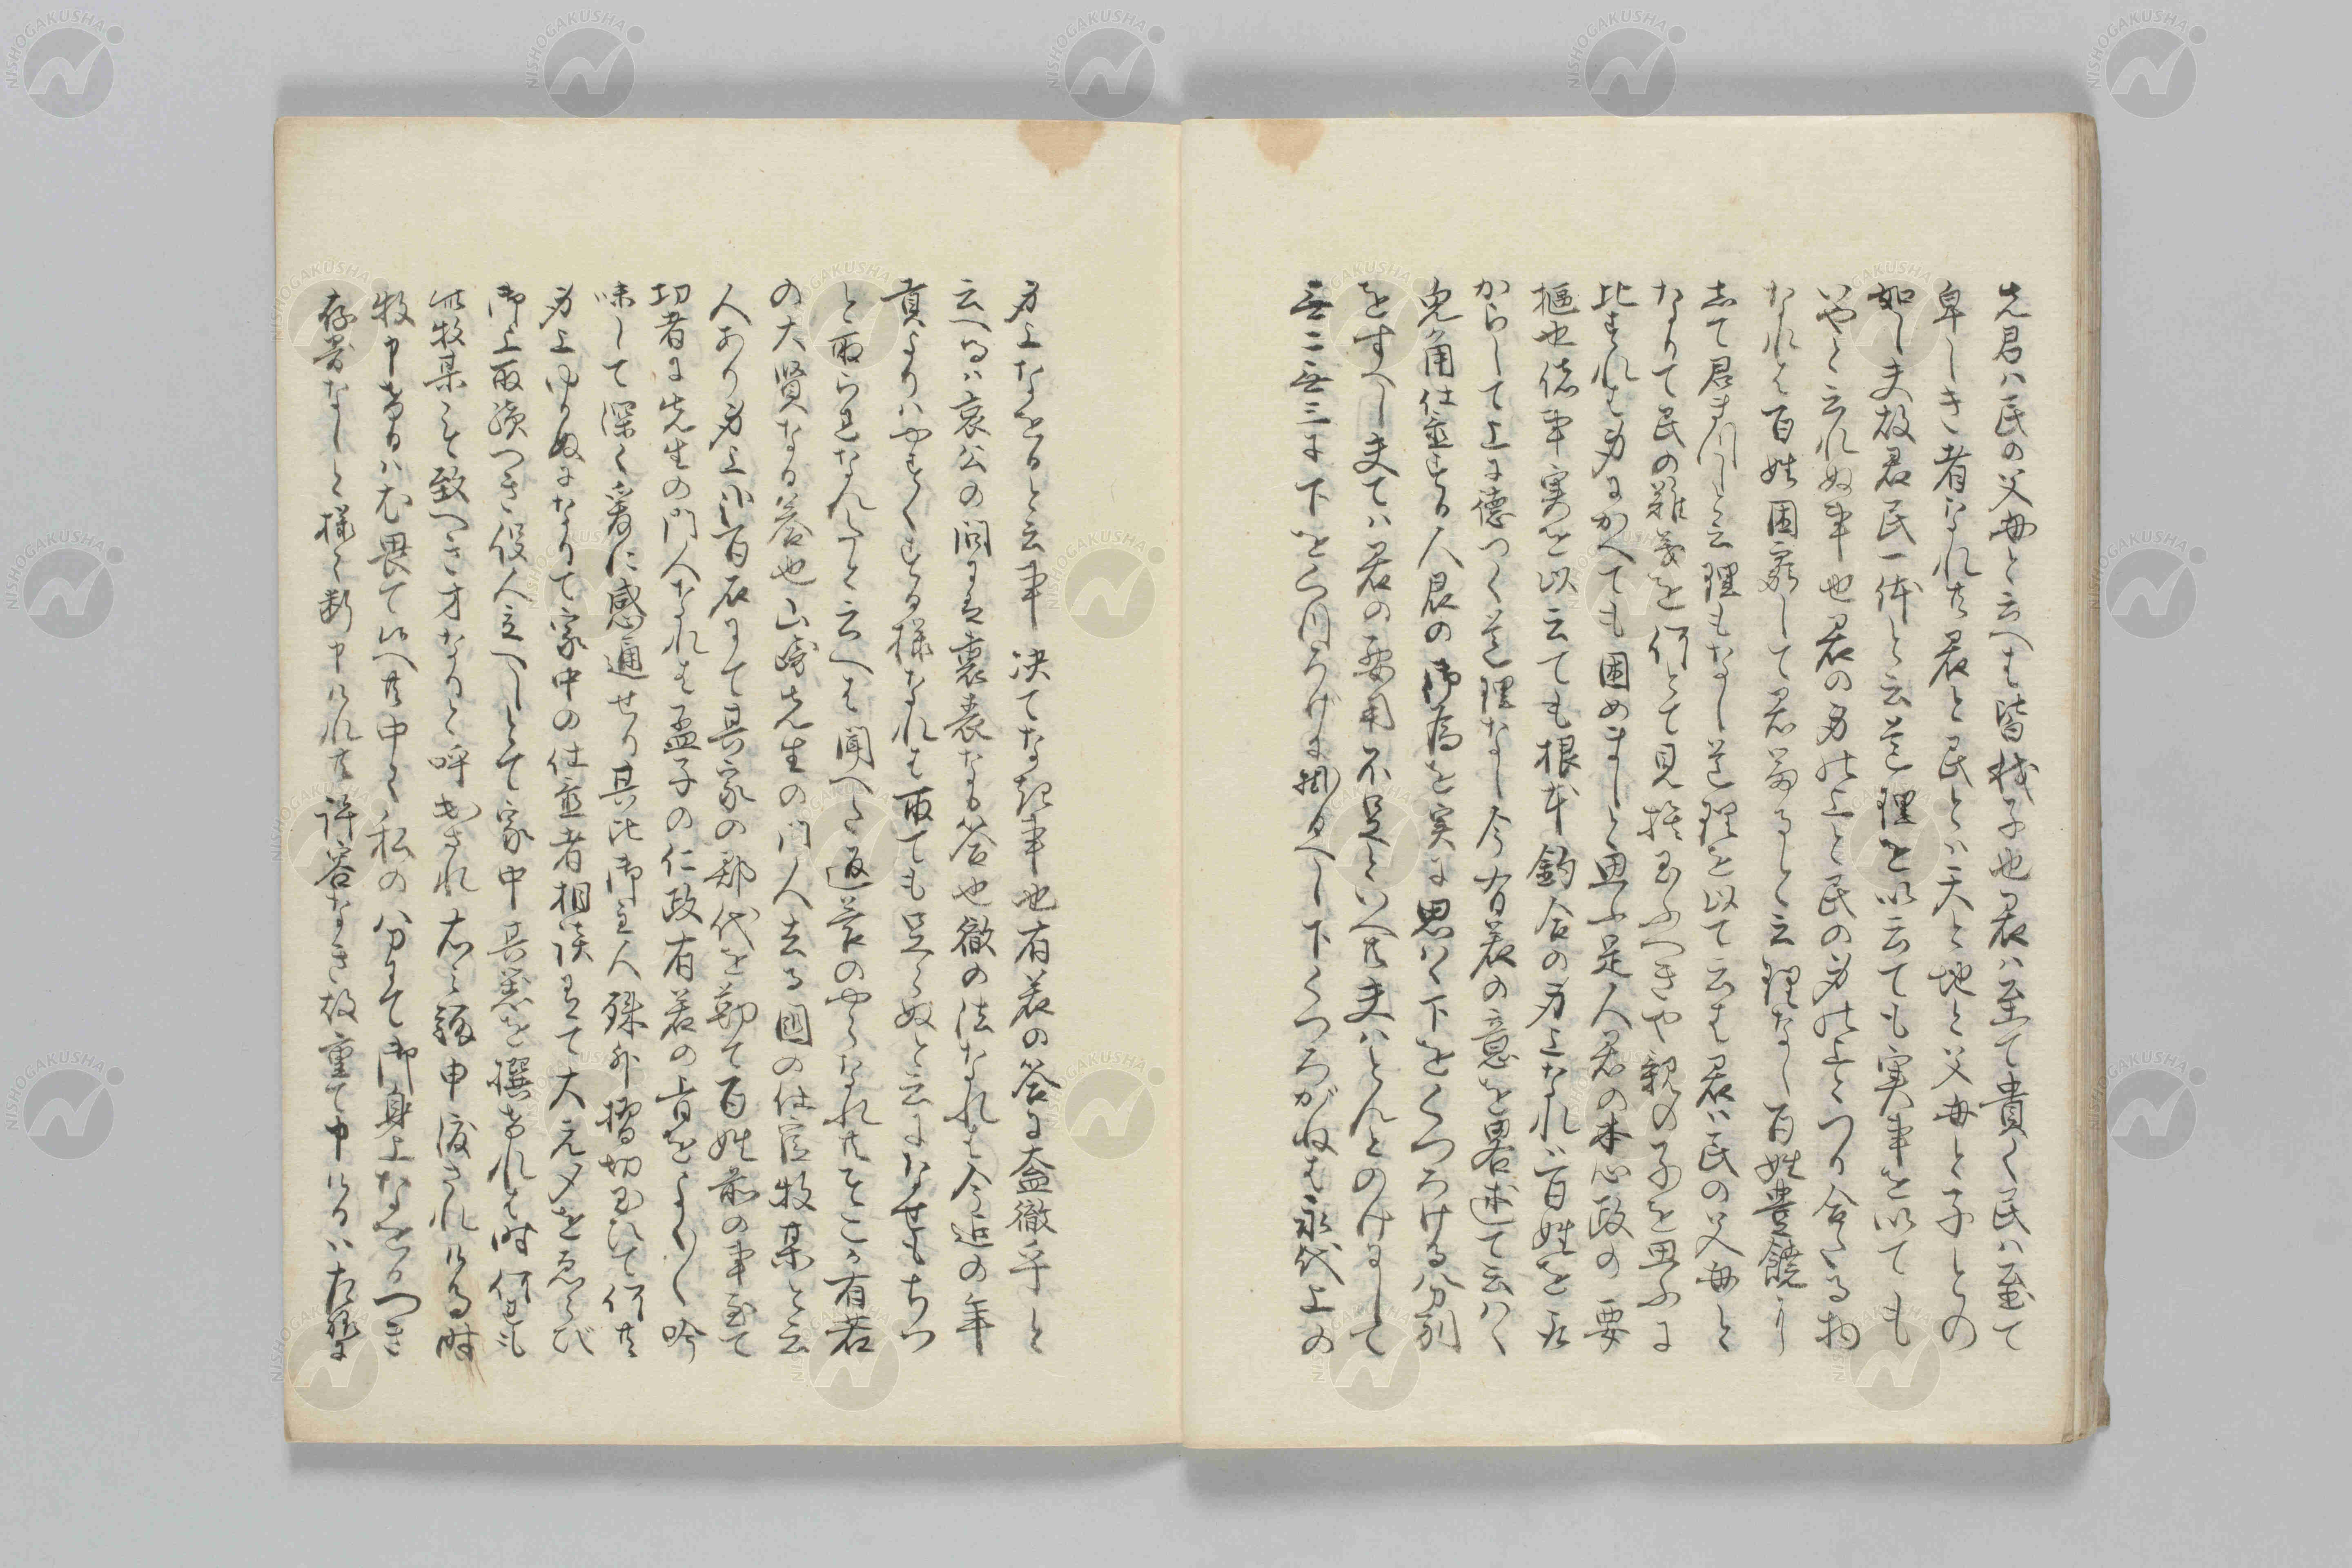 先君ハ民の父母と云へは皆我子也君ハ至て貴く民ハ至て
卑しき者なれ共君と民とハ天と地と父母と子との
如し夫故君民一体と云道理を以云ても実事を以ても
いやと云れぬ事也君の身上と民の身上とつり合たる物
なれは百姓困窮して君富ると云理なし百姓豊饒
して君まつしと云理もなし道理を以て云は君ハ民の父母と
なりて民の難義を何とて見捨玉ふへきや親の子を思ふに
比すれは身にかへても困めましと思ふ是人君の本心政の要
枢也偖事実を以云ても根本釣合の身上なれハ百姓を
からして上に徳つく道理なし今有若の意を畧述て云はく
兎角仕置する人君の御為を実に思はく下をくつろける分別
をすへし夫てハ君の要用不足といへ共夫ハとんとのけまして
無二無三に下をくつろけに掛るへし下くつろがねは永代上の
身上なをると云事決てなき事也有若の答に盍徹乎と
云へるハ哀公の問には裏表なる答也徹の法なれは今迄の年
貢よりハやすくする様なれは取ても足らぬと云に
と取らはなんと云へは聞へた返答のやうなれ共そこか有若
の大賢なる答也山崎先生の門人去る国の仕官牧某と云
人あり身上八百石にて其家の郡代を勤て百姓前の事至て
切者に先生の門人なれは孟子の仁政有若の旨をよくよく吟
味して深く爰に感通せり其比御主人殊外摺切玉ひて何共
身上ゆかぬになりて家中の仕置者相談にて大元〆をゑらび
御上取続つき役人立へしとて家中其器を撰まれは時何も
此牧某こそ致へき才なりと呼出され右之趣申渡されける時
牧申けるハむ畏て候へ共中々私の分にて御身上なをるへき
存寄なしと様々断申けれ共許容なき故重て申けるハ左様に